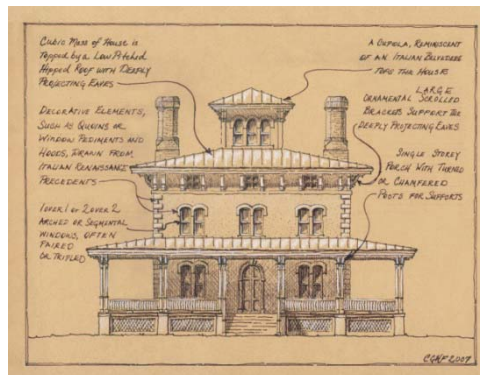 Cubic Mass of House is
Topped by a Low Pitched
Hipped Roof with Deeply
Projecting Eaves
Decorative Elements,
Such as Quoins or
Window Pediments and
Hoods, Drawn from
Italian Renaissance
Precedents
1 over 1 or 2 over 2
Arched or Segmental
Windows, Often
Paired
or Tripled
A Cupola, Reminiscent
of an Italian Belvedere
Tops the House
Large
Ornamental Scrolled
Brackets Support the
Deeply Projecting Eaves
Single Storey
Porch with Turned
or Chamfered
Posts for Supports
2007